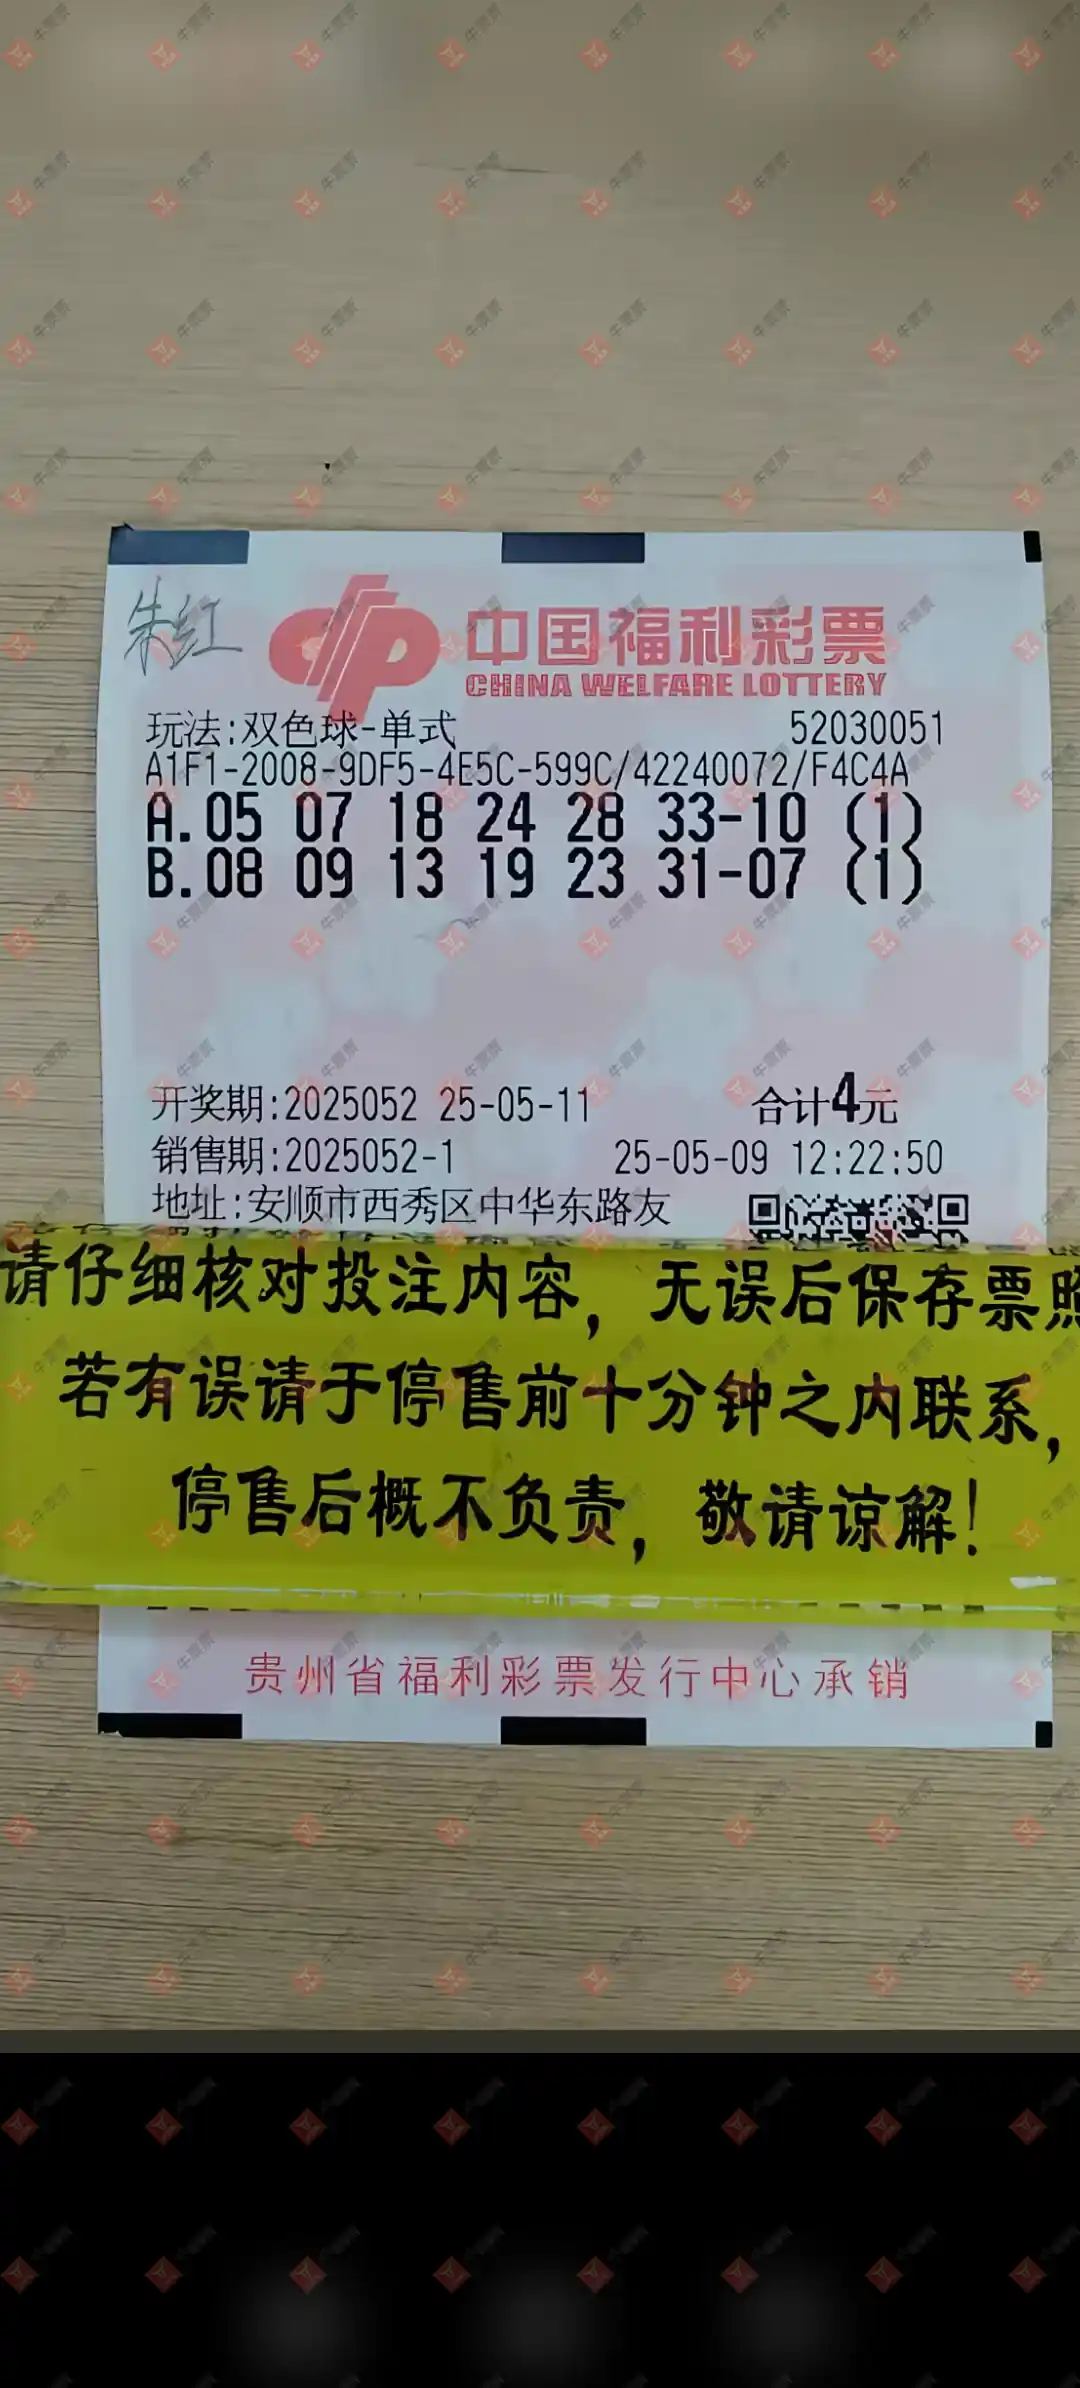 朱红
中国福利彩票
CHINA WELFARE LOTTERY
玩法:双色球-单式 52030051
A1F1-2008-9DF5-4E5C-599C/42240072/F4C4A
A.05 07 18 24 28 33-10 (1)
B.08 09 13 19 23 31-07 (1)
开奖期:2025052 25-05-11 合计4元
销售期:2025052-1 25-05-09 12:22:50
地址:安顺市西秀区中华东路友
请仔细核对投注内容，无误后保存票照
若有误请于停售前十分钟之内联系，
停售后概不负责，敬请谅解！
贵州省福利彩票发行中心承销